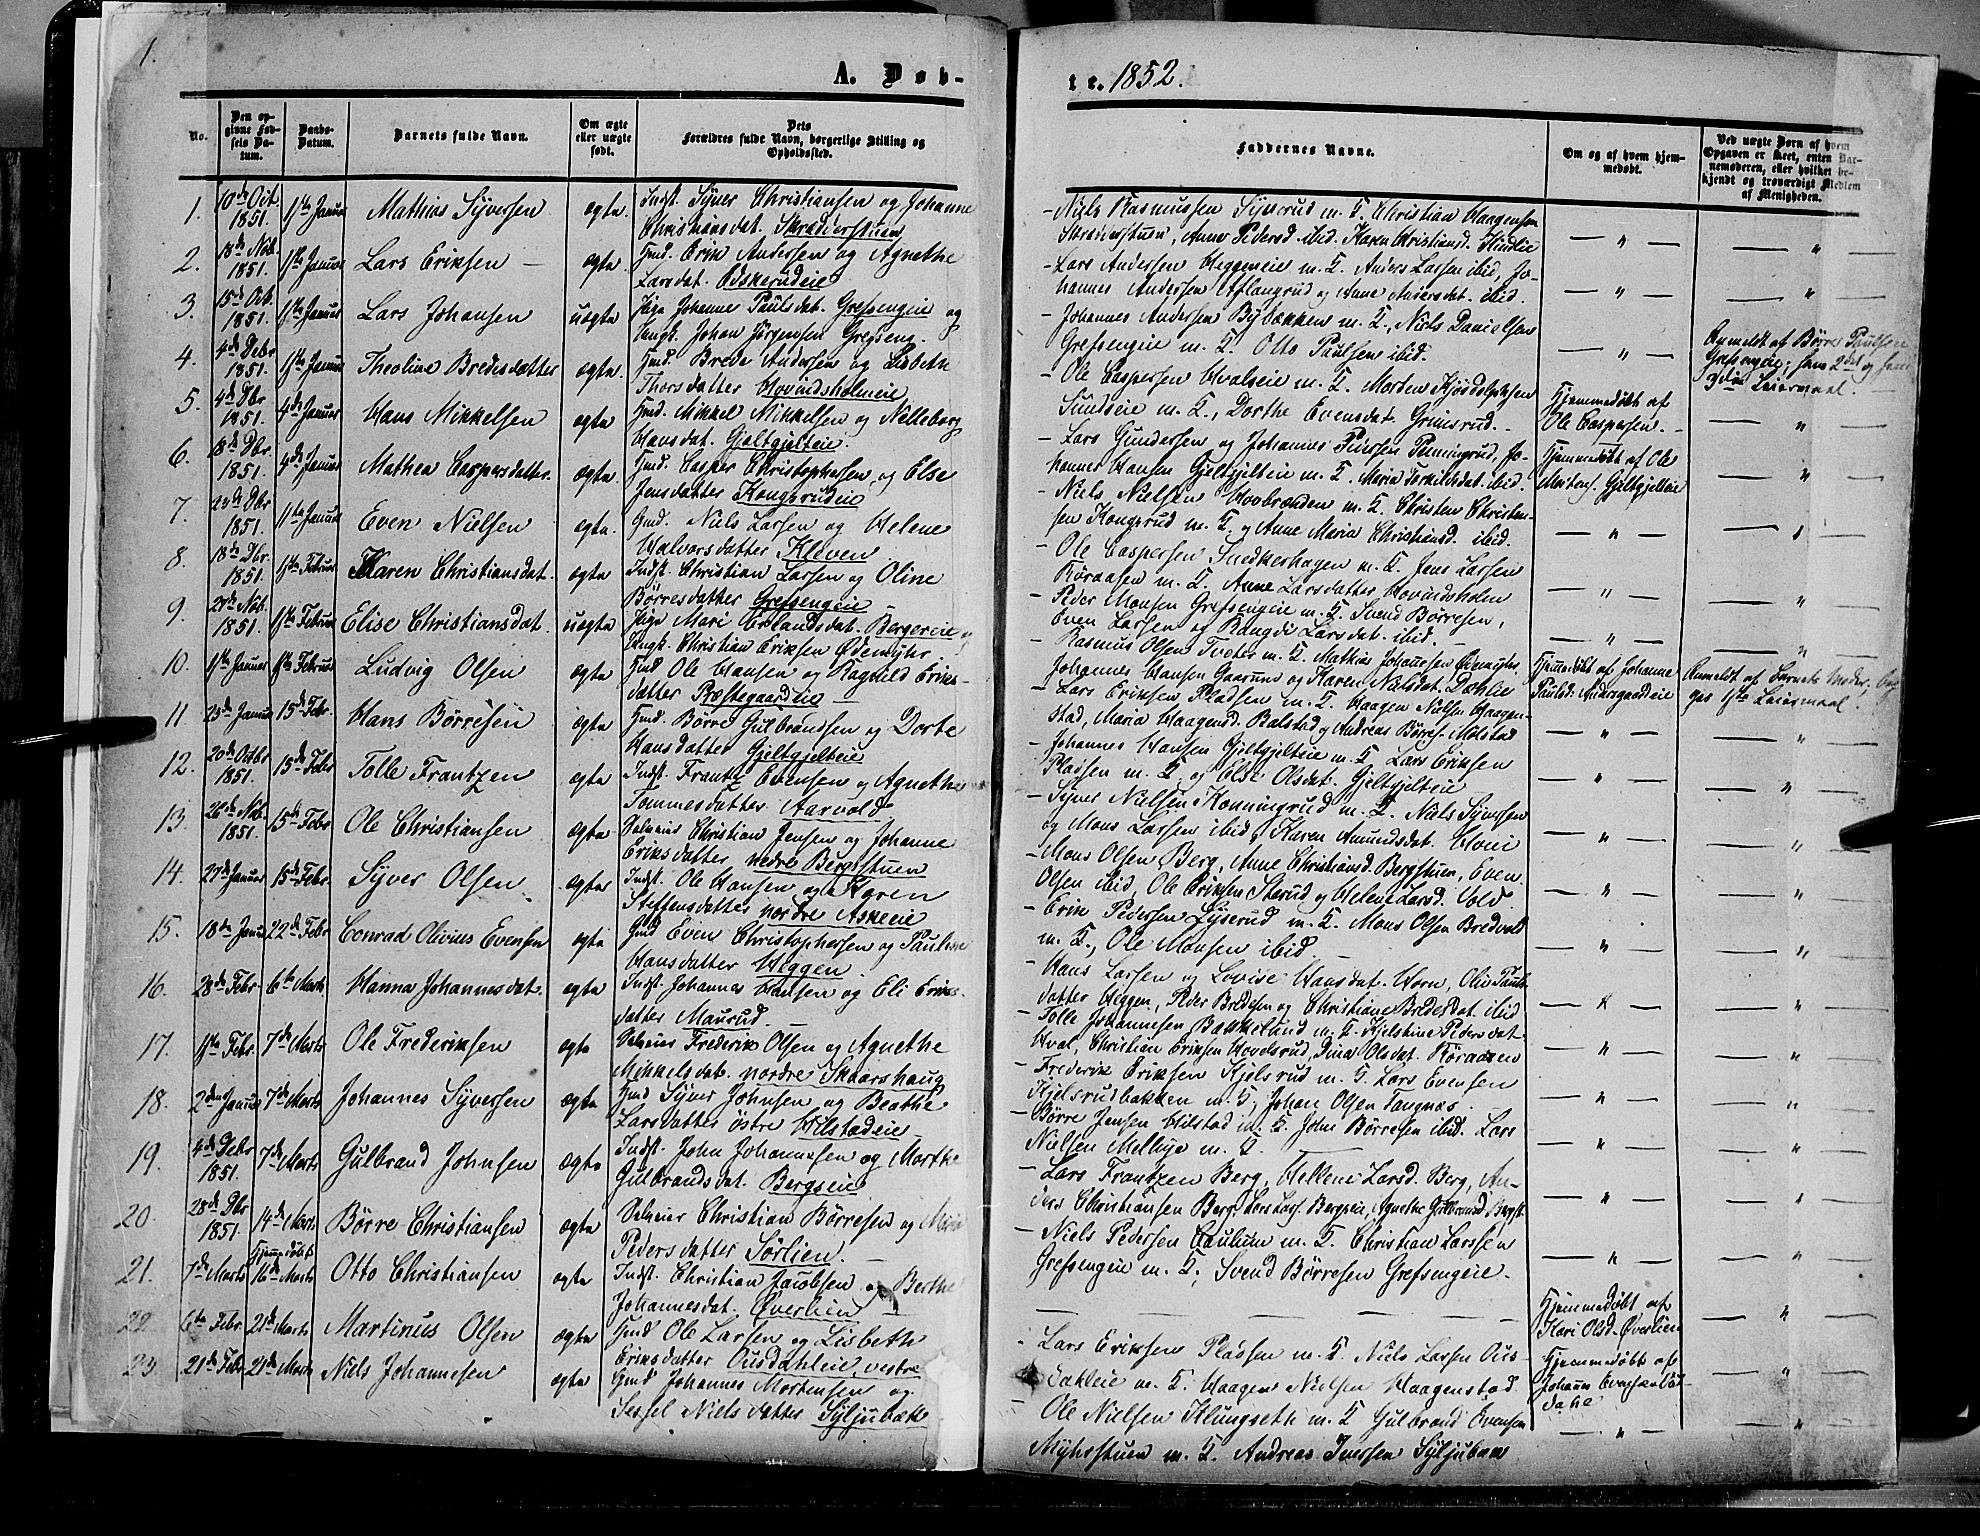 1.
A. Døb-
No.
Den op-
givne Fød-
sels Da-
tum.
Daabs-
Datum.
Barnets fulde Navn.
Om ægte
eller uægte
født.
Dets
Forældres fulde Navn, borgerlige Stilling og
Opholdssted.
1. 10de Oct. 1851. 1ste Januar Mathias Syversen ægte. Indst. Syver Christiansen og Johanne
Christiansdat. Skrædderstuen
2. 18de Nov. 1851. 1ste Januar Lars Eriksen – ægte. Hmd. Erik Andersen og Agnethe
Larsdat. Odskerudeie
3. 15de Oct. 1851. 1ste Januar Lars Johansen uægte Pige Johanne Paulsdat. Grefsengeie og
Ungk. Johan Jørgensen Grefseng.
4. 4de Debr. 1851. 1ste Januar Theoline Bredesdatter ægte. Hmd. Brede Andersen og Lisbeth
Thorsdatter Hovindsholmeie
5. 4de Dbr. 1851. 4de Januar Hans Mikkelsen ægte Hmd. Mikkel Mikkelsen og Nilleborg
Hansdat. Gjeltgjelteie.
6. 18de Dbr. 1851. 4de Januar Mathea Caspersdatter. ægte. Hmd. Casper Christophersen og Else
Jensdatter Kongsrudeie
7. 1851. 11te Januar Even Nielsen ægte. Gmd. Niels Larsen og Helene
Halvorsdatter Kleven.
8. 18de Dbr. 1851. 1ste Februar Karen Christiansdat. ægte Indst. Christian Larsen og Oline
Børresdatter Grefsengeie –
9. 1851. 1ste Februar Elise Christiansdat. uægte Pige Mari Erlandsdat. Bergereie og
Ungk. Christian Eriksen Ødemyhr.
10. 1ste Januar 1ste Februar Ludvig Olsen ægte. Hmd Ole Hansen og Ragnild Eriks-
datter Præstegaardeie –
11. 23de Januar 15de Febr. Hans Børresen ægte Hmd. Børre Gulbrandsen og Dorte
Hansdatter Gjeltgjelteie
12. 20de Octbr 1851. 15de Febr Tolle Frantzen ægte Indst. Frantz Evensen og Agnethe
Tommesdatter Aarvold
13. 26de Nob. 1851. 15de Febr Ole Christiansen ægte Selveier Christian Jensen og Johanne
Eriksdatter nedre Bergstuen
14. 27de Januar 15de Febr. Syver Olsen ægte Indst. Ole Hansen og Karen
Steffensdatter nordre Askeeie
15. 18de Janu 22de Febr Conrad Olivius Evensen ægte Gmd Even Christophersen og Pauline
Hansdatter Heggen
16. 28de Febr 6te Marts Hanna Johannesdat. ægte Indst. Johannes Hansen og Eli Eriks-
datter Maurud.
17. 1ste Febr. 7de Marts Ole Frederiksen ægte Selveier Frederik Olsen og Agnethe
Mikkelsdat. nordre Skaarshaug
18. 2den Januar 7de Marts Johannes Syversen ægte Hmd Syver Johnsen og Beathe
Larsdatter østre Hilstadeie
19. 4de Debr 1851. 7de Marts Gulbrand Johnsen ægte Indst. John Johannesen og Marthe
Gulbrandsdat. Bergseie
20. 28de Dbr 1851. 14de Marts Børre Christiansen ægte Selveier Christian Børresen og
Pedersdatter Sørlien. –
21. 7de Marts Hjemmedøbt 16de Marts Otto Christiansen ægte Indst. Christian Jacobsen og Berthe
Johannesdat. Øverlien
22 6te Febr. 21de Marts Martinus Olsen ægte Hmd Ole Larsen og Lisbeth
Eriksdatter Ousdahleie, vestre
23 21de Febr 21de Marts Niels Johannesen ægte Gmd Johannes Mortensen og
Sessel Nielsdatter Syljubæk
te. 1852.
Faddernes Navne.
Om og af hvem hjem-
medøbt.
Ved uægte Børn af hvem
Opgaven er skeet, enten Bar-
nemoderen, eller hvilket be-
kjendt og troværdigt Medlem
af Menigheden.
– Niels Rasmussen Syverud m. K. Christian Haagensen
Skrædderstuen, Anne Pedersd. ibid. Karen Christiansd. Hindlie
– Lars Andersen Heggeneie m. K. Anders Larsen ibid, Jo-
hannes Andersen Aflangrud og Anne Andersdat. ibid.
– Johannes Andersen Bybækken m. K., Niels Danielsen
Grefsengeie m. K. Otto Paulsen ibid.
– Ole Caspersen Hvalseie m. K. Morten
Sundseie m. K., Dorthe Evensdat. Grimsrud.
– Lars Gundersen og Johannes Iversen Penningrud, Jo-
hannes Hansen Gjeltgjelteie m. K. Maria Torkildsdat. ibid.
– Niels Nielsen Hovbrænden m. K. Christen Christen-
sen Kongsrud m. K. og Anne Maria Christiansd. ibid.
– Ole Caspersen Snedkerhagen m. K. Jens Larsen
Røraasen m. K. Anne Larsdatter Hovindsholm
– Peder Monsen Grefsengeie m. K. Svend Børresen,
Even Larsen og Rangdi Larsdat. ibid. –
– Rasmus Olsen Tveter m. K. Mathias Johannesen Ødemyhr
Johannes Hansen Gaarum og Karen Nilsdat. Dæhlie
– Lars Eriksen Pladsen m. K. Haagen Nilsen Haagen-
stad, Maria Haagensd. Balstad og Andreas Børres. Molstad
– Johannes Hansen Gjeltgjelteie m. K Lars Eriksen
Pladsen m. K og Else Olsdat. Gjeltgjelteie
– Syver Nielsen Konningrud m. K. Niels Syversen
og Mons Larsen ibid, Karen Amundsdat. Hoiei
– Mons Olsen Berg, Anne Christiansd. Bergstuen, Even
Olsen ibid, Ole Eriksen Sterud og Helene Larsd. Vold
– Erik Pedersen Lyserud m. K. Mons Olsen Bredvold
m. K., Ole Monsen ibid. –
– Hans Larsen og Lovise Hansdat. Horn, Olia Pauls
datter Heggen, Peder Bredesen og Christiane Bredesdat ibid
– Tolle Johannesen Bakkelund m. K. Kjelstine Pedersdat.
Hval, Christian Eriksen Hovelsrud, Dina Olsdat. Røraasen
– Frederik Eriksen Kjelsrud m. K. Lars Evensen
Kjelsrudbakken m. K; Johan Olsen Tangnæs.
– Børre Jensen Hilstad m. K. John Børresen ibid. Lars
Nielsen Mellbye m. K.
– Lars Frantzen Berg, Hellene Larsd. Berg, An-
ders Christiansen Berg, Lars Lars. Bergseie, Agnethe Gulbrandsd. Bergst.
– Niels Pedersen Haulum m. K. Christian Larssen
Grefsengeie m. K; Svend Børresen Grefsengeie.
– Lars Eriksen Pladsen m. K Niels Larsen Ous-
dahleie m. K. Haagen Nielsen Haagenstad
– Ole Nielsen Klungseth m. K Gulbrand Evensen
Myhrstuen m. K. Andreas Iversen Syljubæk
Hjemmedøbt af
Ole Caspersen.
Hjemmedøbt af Ole
Mortens. Gjeltgjelteie
Hjemmedøbt af Johanne
Paulsd.
Hjemmedøbt af
Kari Olsd. Øverlien
Hjemmedøbt af
Johannes Evensen Ous-
dahl
Anmeldt af Børre Paulsen
Grefsengeie; hans 2det og hendes
Leiermaal.
Anmeldt af Barnets Moder, beg-
ges 1ste Leiermaal.